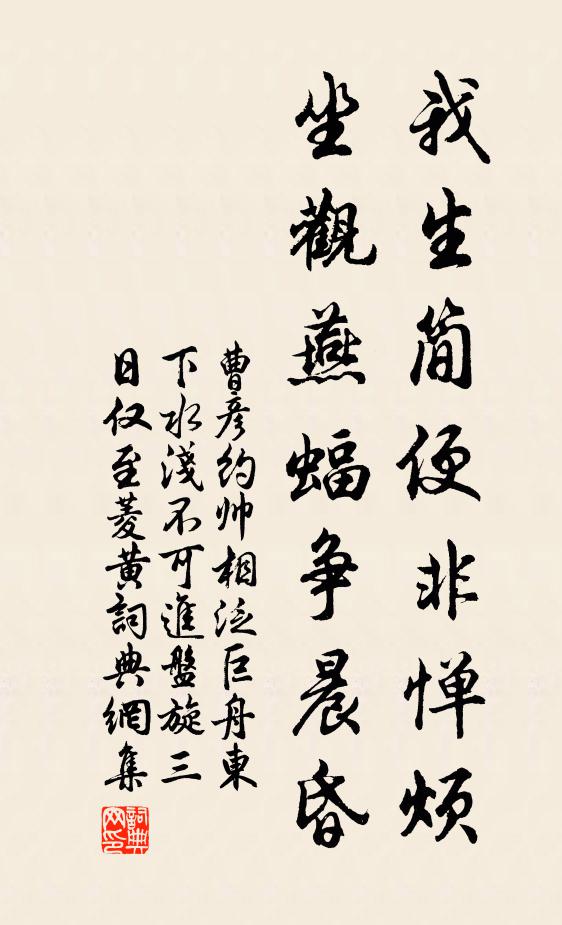 我生简便非惮烦
坐觀燕蝠争晨昏
曹彦约帅相泛巨舟東
下水淺不可進盤旋三
日仅至菱黄詞典網集
詞典
网印